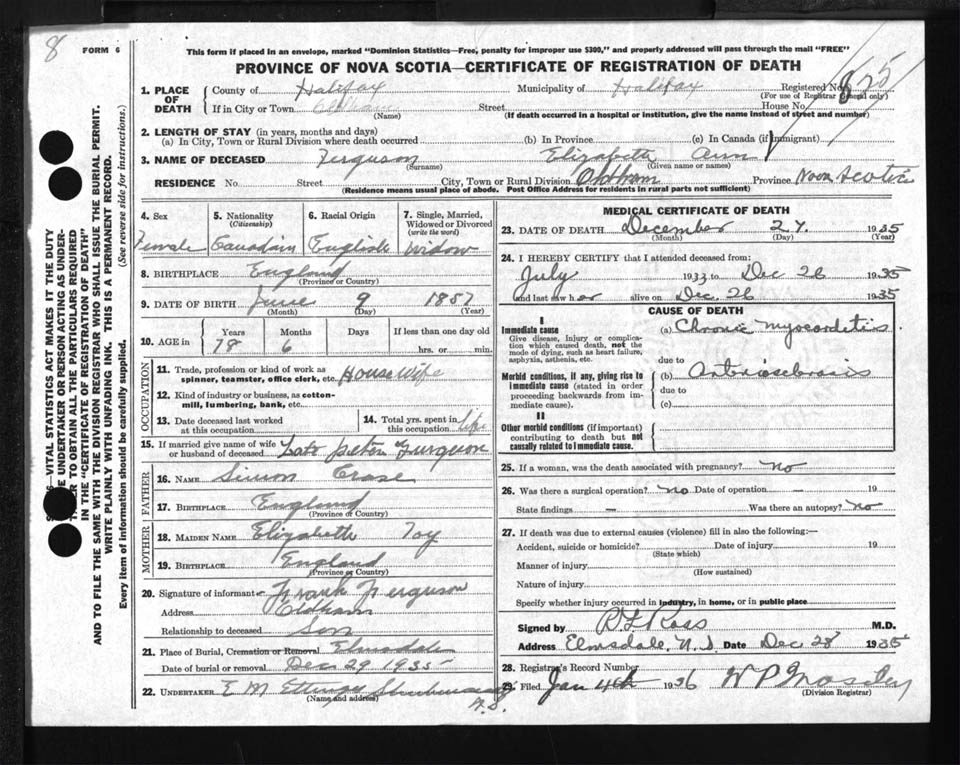 8
FORM 6
This form if placed in an envelope, marked "Dominion Statistics—Free, penalty for improper use $300," and properly addressed will pass through the mail "FREE"
PROVINCE OF NOVA SCOTIA—CERTIFICATE OF REGISTRATION OF DEATH
1. PLACE OF DEATH
County of Halifax Municipality of Halifax Registered No. 825
(For use of Registrar General only)
If in City or Town Oldham Street House No.
(Name) (If death occurred in a hospital or institution, give the name instead of street and number)
2. LENGTH OF STAY (in years, months and days)
(a) In City, Town or Rural Division where death occurred (b) In Province (c) In Canada (if immigrant)
3. NAME OF DECEASED Ferguson Elizabeth Ann
(Surname) (Given name or names)
RESIDENCE No. Street City, Town or Rural Division Oldham Province Nova Scotia
(Residence means usual place of abode. Post Office Address for residents in rural parts not sufficient)
4. Sex
Female
5. Nationality
(Citizenship)
Canadain
6. Racial Origin
English
7. Single, Married,
Widowed or Divorced
(write the word)
Widow
8. BIRTHPLACE England
(Province or Country)
9. DATE OF BIRTH June 9 1857
(Month) (Day) (Year)
10. AGE in
Years Months Days If less than one day old
78 6 hrs. or min.
OCCUPATION
11. Trade, profession or kind of work as
spinner, teamster, office clerk, etc. House wife
12. Kind of industry or business, as cotton-
mill, lumbering, bank, etc.
13. Date deceased last worked
at this occupation
14. Total yrs. spent in
this occupation life
15. If married give name of wife
or husband of deceased Late peter Furguson
FATHER
16. NAME Simon
17. BIRTHPLACE England
(Province or Country)
MOTHER
18. MAIDEN NAME Elizabeth Toy
19. BIRTHPLACE England
(Province or Country)
20. Signature of informant Frank Ferguson
Address Oldham
Relationship to deceased Son
21. Place of Burial, Cremation or Removal Elmsdale
Date of burial or removal Dec 29 1935
22. UNDERTAKER E M Ettinger
(Name and address)
N.S.
MEDICAL CERTIFICATE OF DEATH
23. DATE OF DEATH December 27. 1935
(Month) (Day) (Year)
24. I HEREBY CERTIFY that I attended deceased from:
July 1933 to Dec 26 1935
and last saw her alive on Dec. 26 1935
CAUSE OF DEATH
I
Immediate cause
Give disease, injury or complica-
tion which caused death, not the
mode of dying, such as heart failure,
asphyxia, asthenia, etc.
(a) Chronic Myocarditis
due to
Morbid conditions, if any, giving rise to
immediate cause (stated in order
proceeding backwards from im-
mediate cause).
(b)
due to
(c)
II
Other morbid conditions (if important)
contributing to death but not
causally related to immediate cause.
25. If a woman, was the death associated with pregnancy? no
26. Was there a surgical operation? no Date of operation — 19
State findings — Was there an autopsy? no
27. If death was due to external causes (violence) fill in also the following:—
Accident, suicide or homicide? Date of injury 19
(State which)
Manner of injury
(How sustained)
Nature of injury
Specify whether injury occurred in industry, in home, or in public place
Signed by R L Ross M.D.
Address Elmsdale, N.S. Date Dec 28 1935
28. Registrar's Record Number
29. Filed Jan 4th 1936 W P Moseley
(Division Registrar)
VITAL STATISTICS ACT MAKES IT THE DUTY
UNDERTAKER OR PERSON ACTING AS UNDER-
TO OBTAIN ALL THE PARTICULARS REQUIRED
IN THE "CERTIFICATE OF REGISTRATION OF DEATH"
AND TO FILE THE SAME WITH THE DIVISION REGISTRAR WHO SHALL ISSUE THE BURIAL PERMIT.
WRITE PLAINLY WITH UNFADING INK. THIS IS A PERMANENT RECORD.
Every item of information should be carefully supplied. (See reverse side for instructions.)